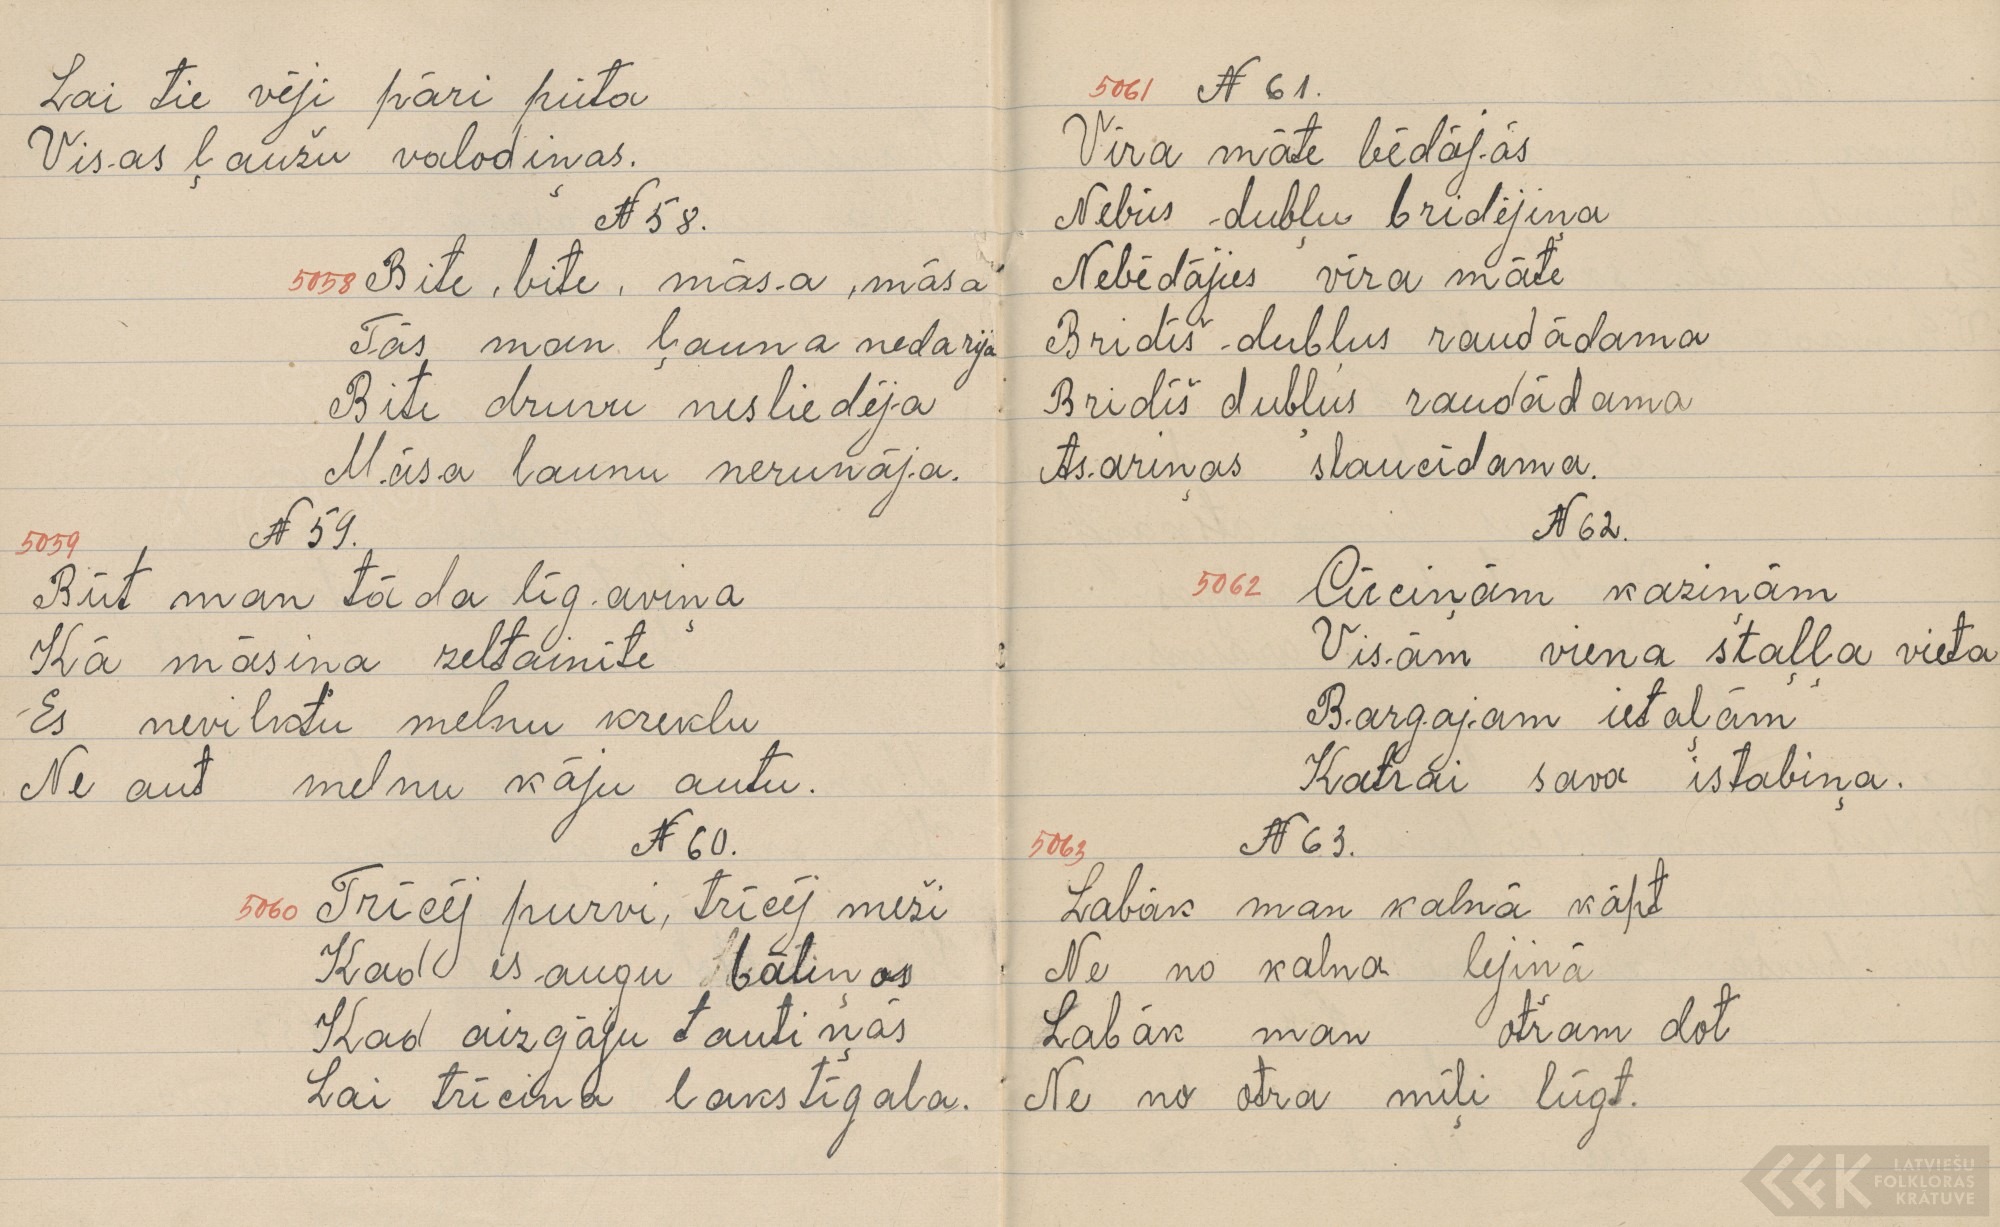 Lai tie vēji pāri pūta
Visas ļaužu valodiņas.
№ 58.
5058 Bite, bite, māsa, māsa
Tās man ļauna nedarija
Bite druvu nesliedēja
Māsa launu nerunāja.
5059 № 59.
Būt man tāda līgaviņa
Kā māsina zeltainīte
Es nevilktu melnu kreklu
Ne aut melnu kāju autu.
№ 60.
5060 Trīcēj purvi, trīcēj meži
Kad es augu bāliņos
Kad aizgāju tautiņās
Lai trīcina lakstīgala.
5061 № 61.
Vīra māte bēdājās
Nebūs dubļu bridējiņa
Nebēdājies vīra māte
Bridīš dubļus raudādama
Bridīš dubļus raudādama
Asariņas slaucīdama.
№ 62.
5062 Cūciņām kaziņām
Visām viena staļļa vieta
Bargajam ietaļām
Katrai sava istabiņa.
5063 № 63.
Labāk man kalnā kāpt
Ne no kalna lejinā
Labāk man otram dot
Ne no otra mīļi lūgt.
LATVIEŠU
FOLKLORAS
KRĀTUVE